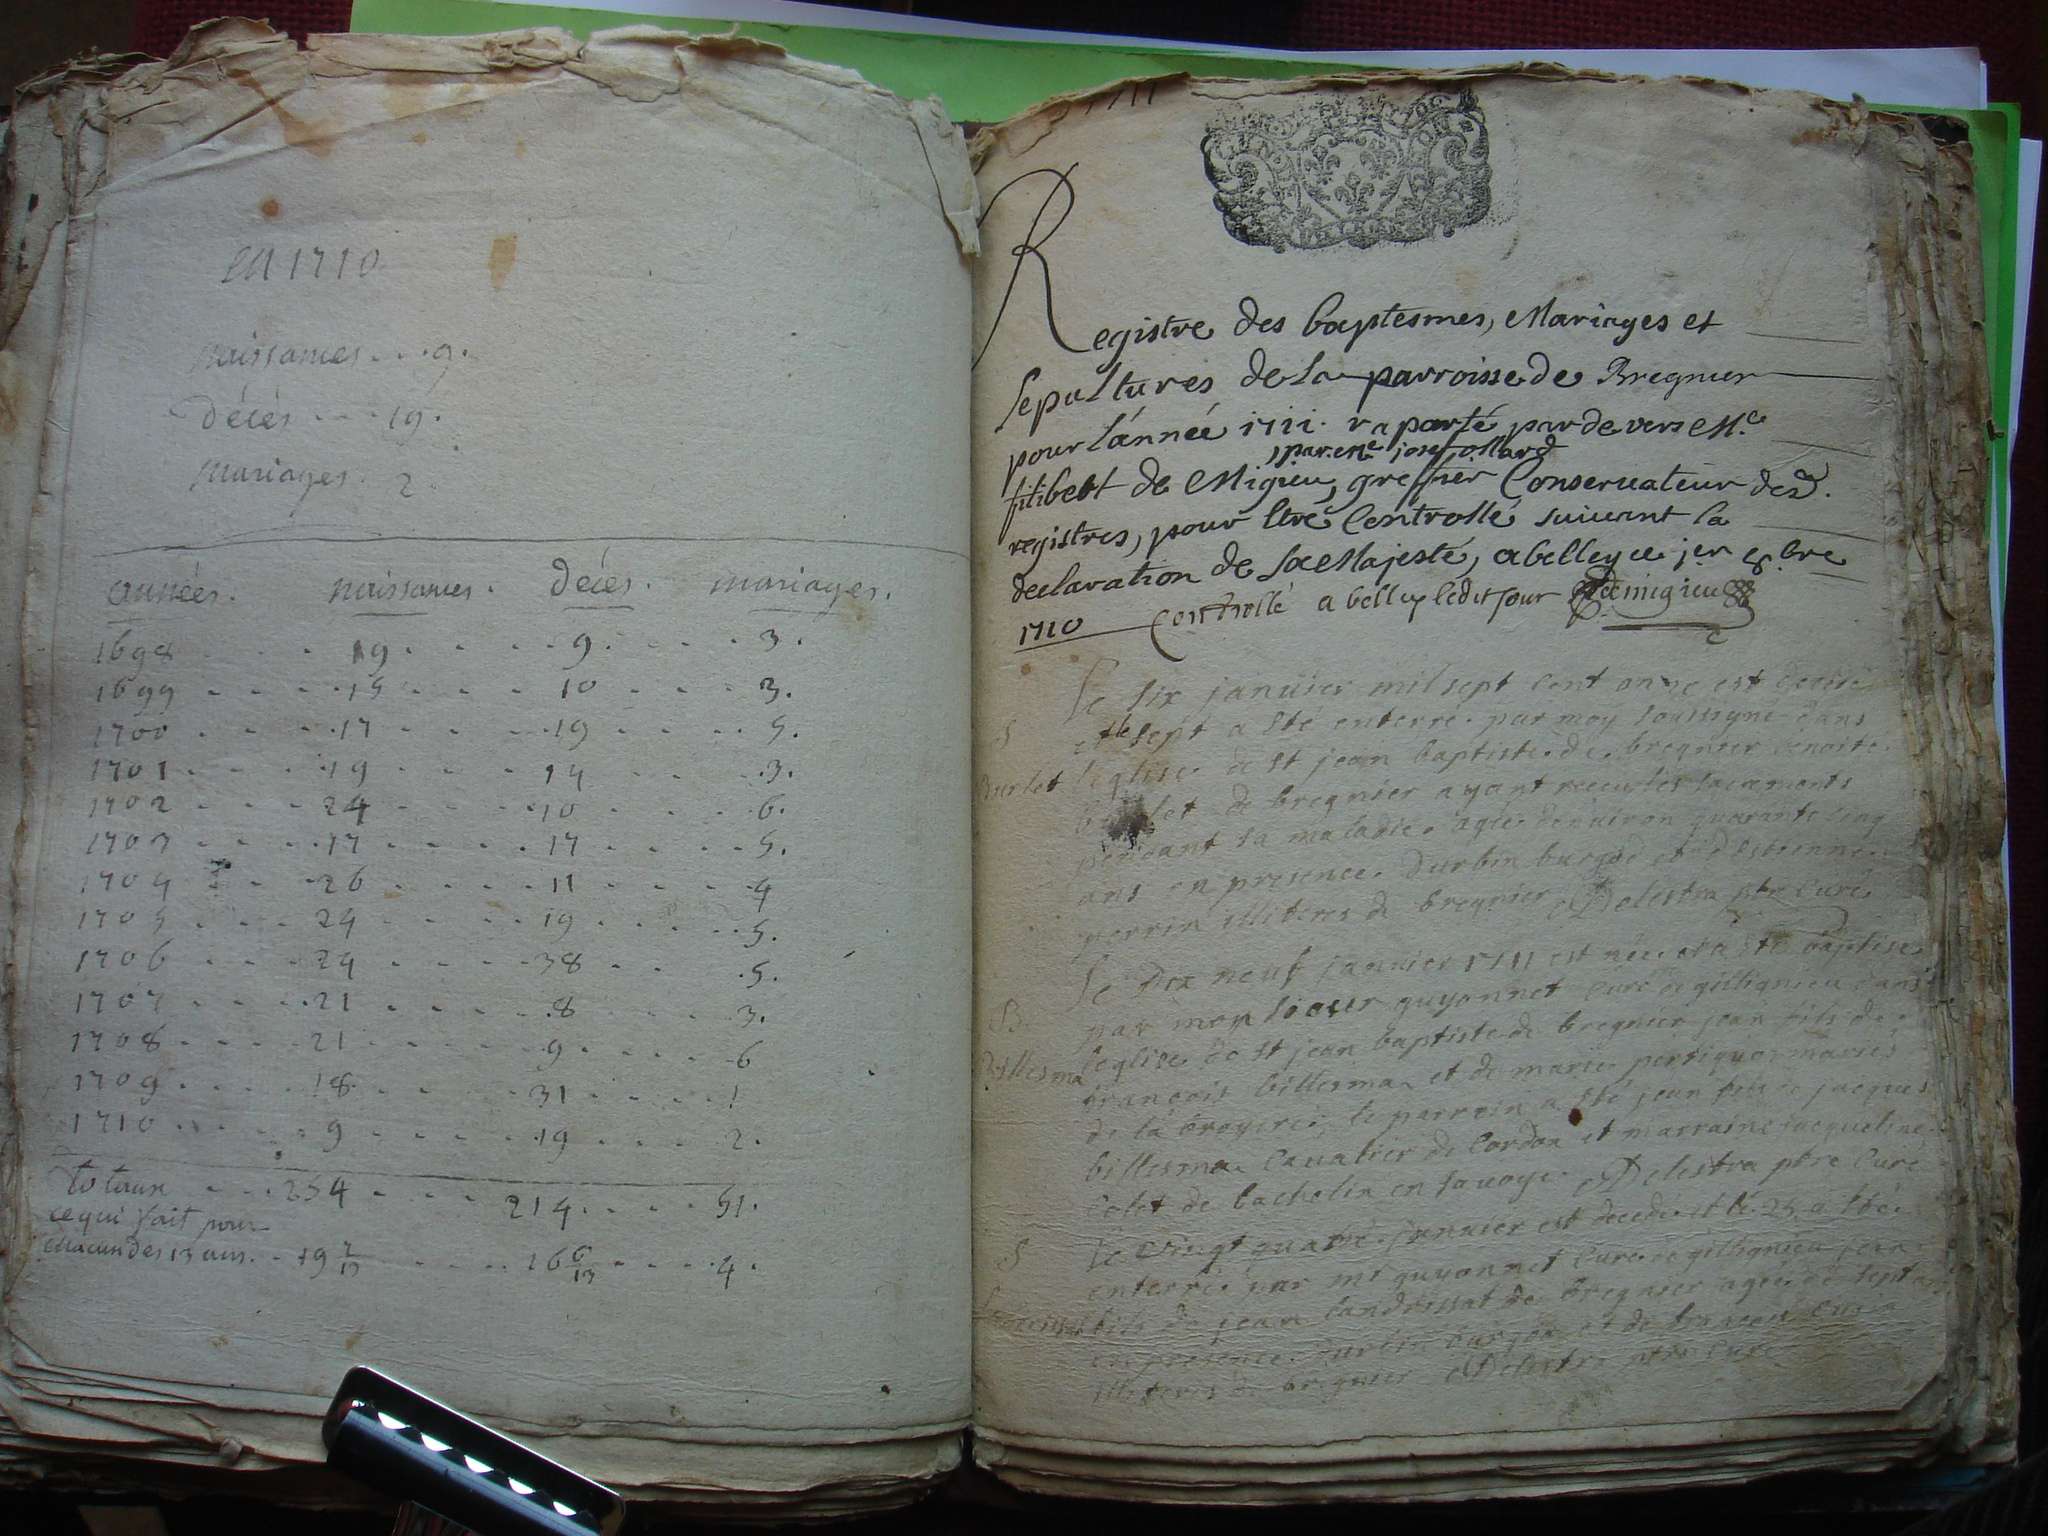 en 1710
naissances . . . 9.
décés . . . 19.
mariages. 2
années. naissances. décés. mariages.
1698 . . . 19 . . . . 9. . . . 3.
1699 . . . 15 . . . . 10 . . . 3.
1700 . . . 17 . . . . 19 . . . 5.
1701 . . . 19 . . . . 14 . . . 3.
1702 . . . 24 . . . . 10 . . . 6.
1703 . . . 17 . . . . 17 . . . 5.
1704 . . . 26 . . . . 11 . . . 4
1705 . . . 24 . . . . 19 . . . 5.
1706 . . . 24 . . . . 38 . . . 5.
1707 . . . 21 . . . . 8 . . . 3.
1708 . . . 21 . . . . 9 . . . 6
1709 . . . 18 . . . . 31 . . . 1
1710 . . . 9 . . . . 19 . . . 2.
totaux . . . 254 . . . . 214. . . . 51.
ce qui fait pour
chacun des 13 ans. . 19 7/13 . . . . 16 6/13 . . . . 4.
1711
Registre des baptesmes, Mariages et
sepultures de la parroisse de Bregnier
pour l'année 1711. raporté par devers Me
par Me josep ollard
filibert de Migieu, greffier Conservateur desd.
registres, pour être Controllé suivant la
declaration de sa Majesté, a belley ce jer 8.bre
1710 Controllé a belley ledit jour Demigieu
Le six janvier mil sept cent onze est decedé
S et le sept a esté enterré par moy soussigné dans
Burlet l'eglise de st jean baptiste de bregnier benoite
burlet de bregnier ayant receu les sacraments
pendant sa maladie agée d'environ quarante cinq
ans en presence d'urbin burgod et d'estienne
perrin illiteres de bregnier Delestra ptre curé
Le dix neuf janvier 1711 est née et a esté baptisé
B. par monsieur guyonnet curé de gellignieu dans
Billesma l'eglise de st jean baptiste de bregnier jean fils de
françois billesma et de marie pertiquoz mariés
de la broyere, le parrain a esté jean fils de jacques
billesma Cavalier de Cordon et marraine jacqueline
Colet de bachelin en savoye Delestra ptre Curé
S Le vingt quatre janvier est decedé et le 25 a esté
enterré par mr guyonnet Curé de gellignieu jean
fils de jean landrissat de bregnier agée de sept ans
en presence d'urbin burgod et de françois
illiteres de bregnier Delestra ptre Curé